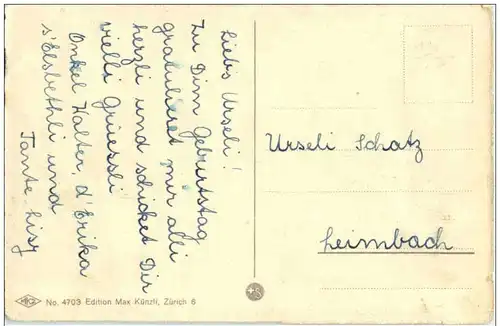 Liebs Urseli!
Zu Dim Geburtstag
gratulieret mir alli
herzli und schicket Dir
vielli Grüessli
Onkel Walter, d'Erika
s'Elsbethli und
Tante Lisy
Urseli Schatz
Leimbach
No. 4703 Edition Max Künzli, Zürich 6